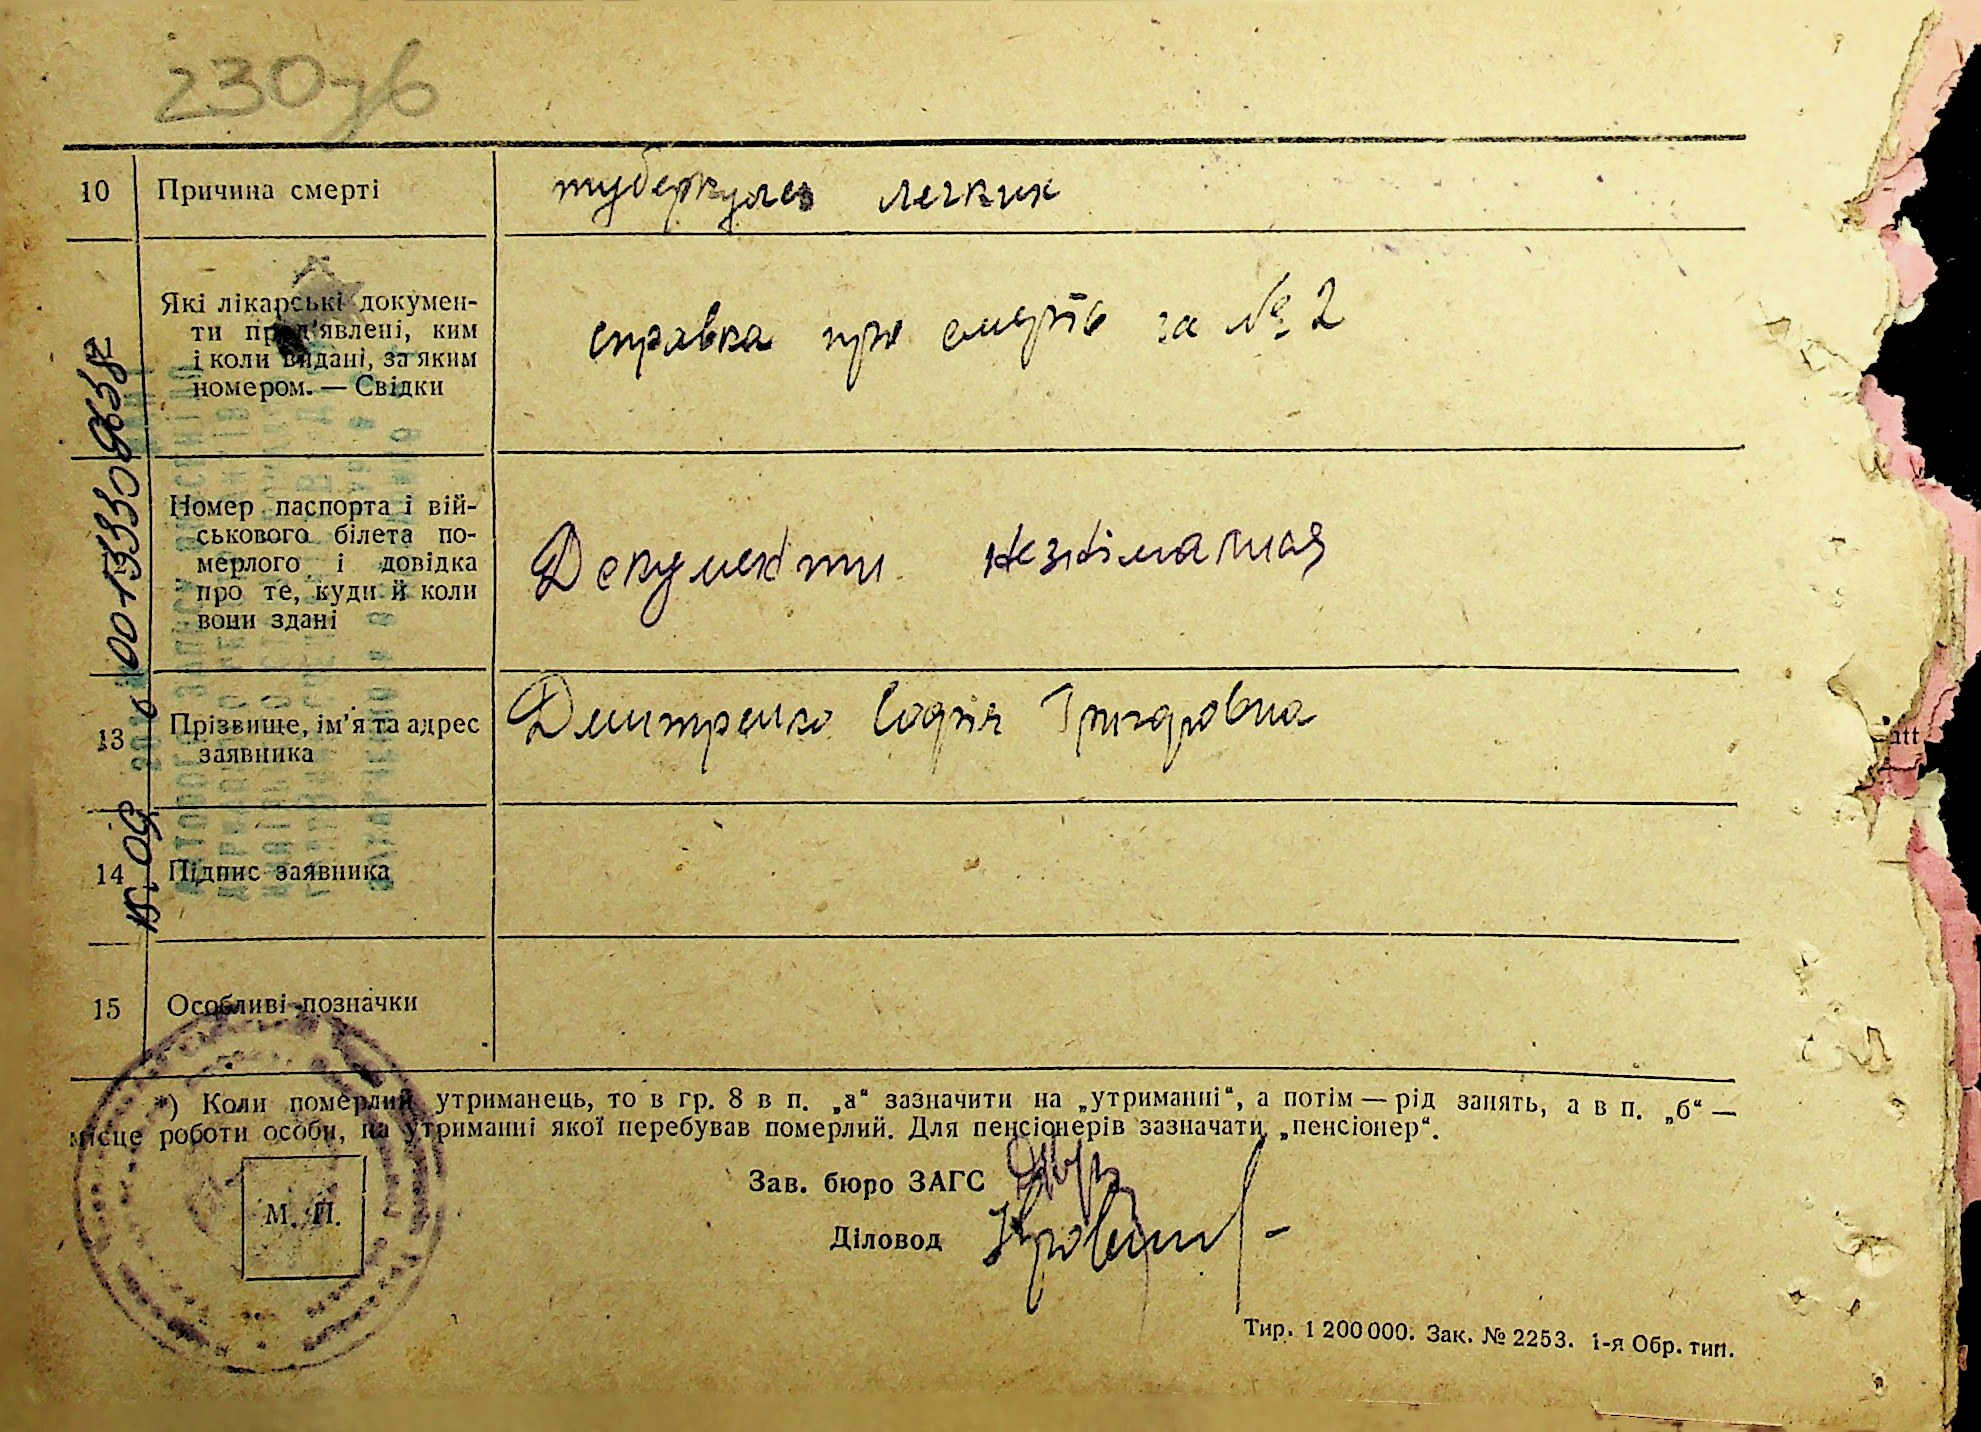 230зв
10 Причина смерті туберкульоз легких
Які лікарські докумен-
ти пред'явлені, ким
і коли видані, за яким
номером. — Свідки
справка про смерть за № 2
12 Номер паспорта і вій-
ськового білета по-
мерлого і довідка
про те, куди й коли
вони здані
Документи
13 Прізвище, ім'я та адрес
заявника
Дмитренко Софія Григоровна
14 Підпис заявника
15 Особливі позначки
*) Коли померлий утриманець, то в гр. 8 в п. „а“ зазначити на „утриманні“, а потім — рід занять, а в п. „б“ —
місце роботи особи, на утриманні якої перебував померлий. Для пенсіонерів зазначати „пенсіонер“.
М. П.
Зав. бюро ЗАГС
Діловод
Тир. 1 200 000. Зак. № 2253. 1-я Обр. тип.